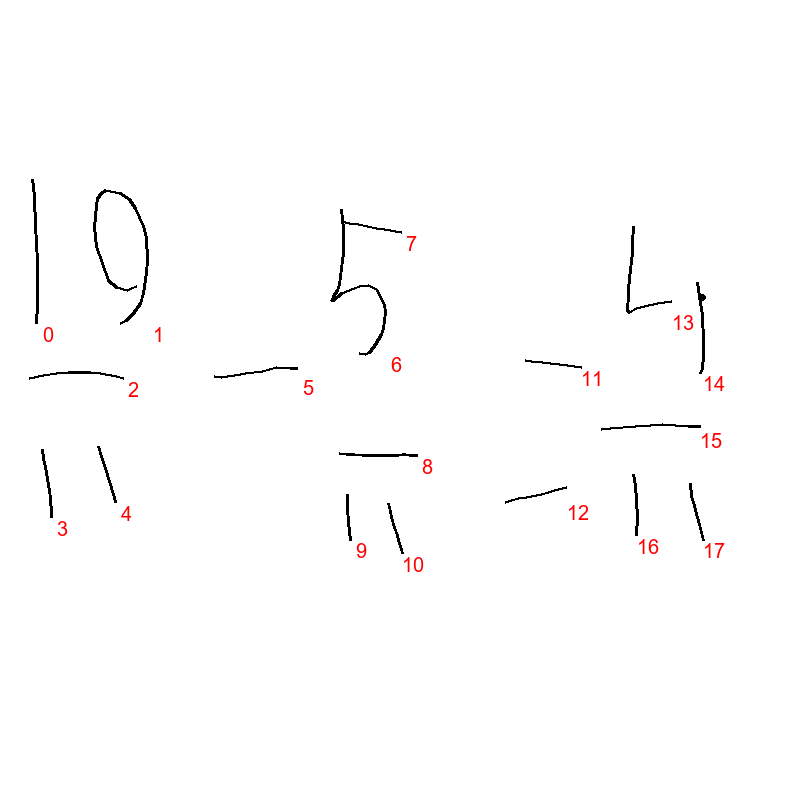 19/11 - 5/11 = 4/11
0
1
2
3
4
5
6
7
8
9
10
11
12
13
14
15
16
17